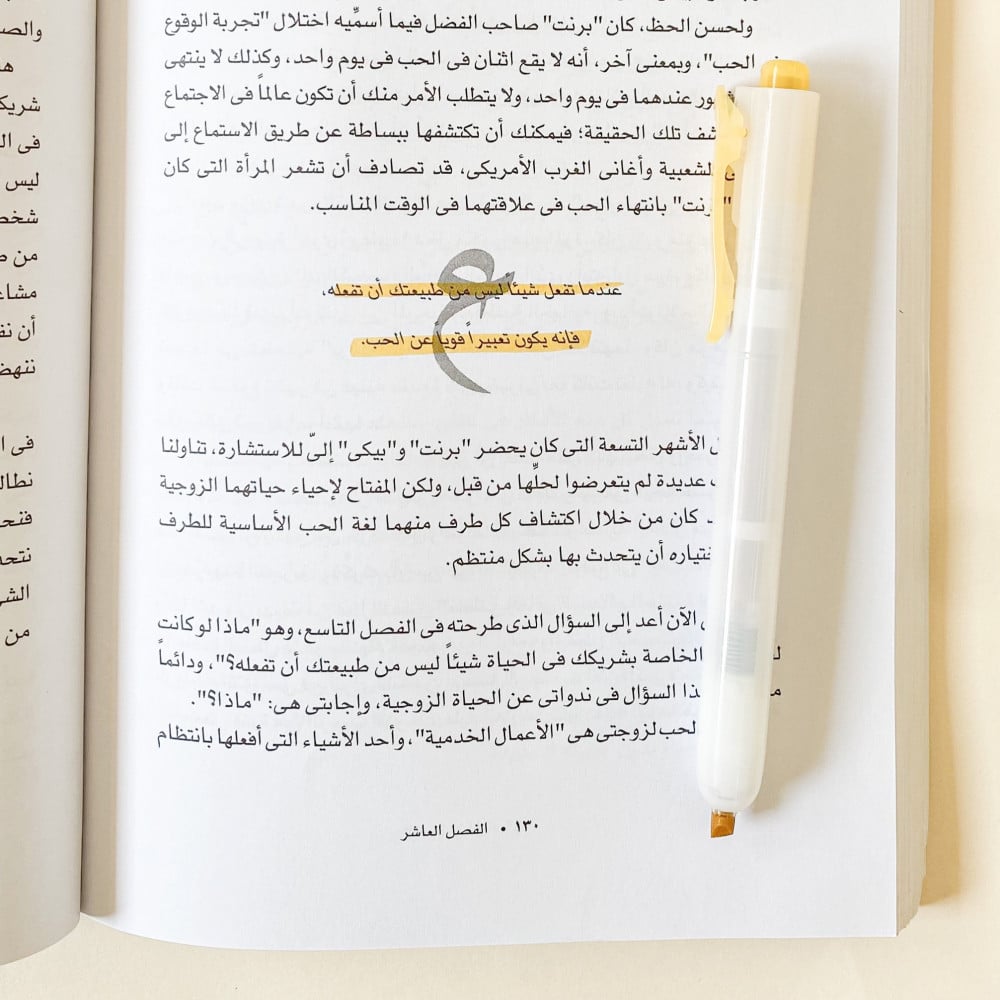 ولحسن الحظ، كان "برنت" صاحب الفضل فيما أسمِّيه اختلال "تجربة الوقوع
الحب"، وبمعنى آخر، أنه لا يقع اثنان فى الحب فى يوم واحد، وكذلك لا ينتهى
عندهما فى يوم واحد، ولا يتطلب الأمر منك أن تكون عالماً فى الاجتماع
تلك الحقيقة؛ فيمكنك أن تكتشفها ببساطة عن طريق الاستماع إلى
الشعبية وأغانى الغرب الأمريكى، قد تصادف أن تشعر المرأة التى كان
"برنت" بانتهاء الحب فى علاقتهما فى الوقت المناسب.
ع
عندما تفعل شيئاً ليس من طبيعتك أن تفعله،
فإنه يكون تعبيراً قوياً عن الحب.
الأشهر التسعة التى كان يحضر "برنت" و"بيكى" إلىّ للاستشارة، تناولنا
عديدة لم يتعرضوا لحلِّها من قبل، ولكن المفتاح لإحياء حياتهما الزوجية
كان من خلال اكتشاف كل طرف منهما لغة الحب الأساسية للطرف
أن يتحدث بها بشكل منتظم.
الآن أعد إلى السؤال الذى طرحته فى الفصل التاسع، وهو "ماذا لو كانت
الخاصة بشريكك فى الحياة شيئاً ليس من طبيعتك أن تفعله؟"، ودائماً
السؤال فى ندواتى عن الحياة الزوجية، وإجابتى هى: "ماذا؟".
لزوجتى هى "الأعمال الخدمية"، وأحد الأشياء التى أفعلها بانتظام
١٣٠ • الفصل العاشر
شريك
ليس
أن نف
ننهض
نطال
من